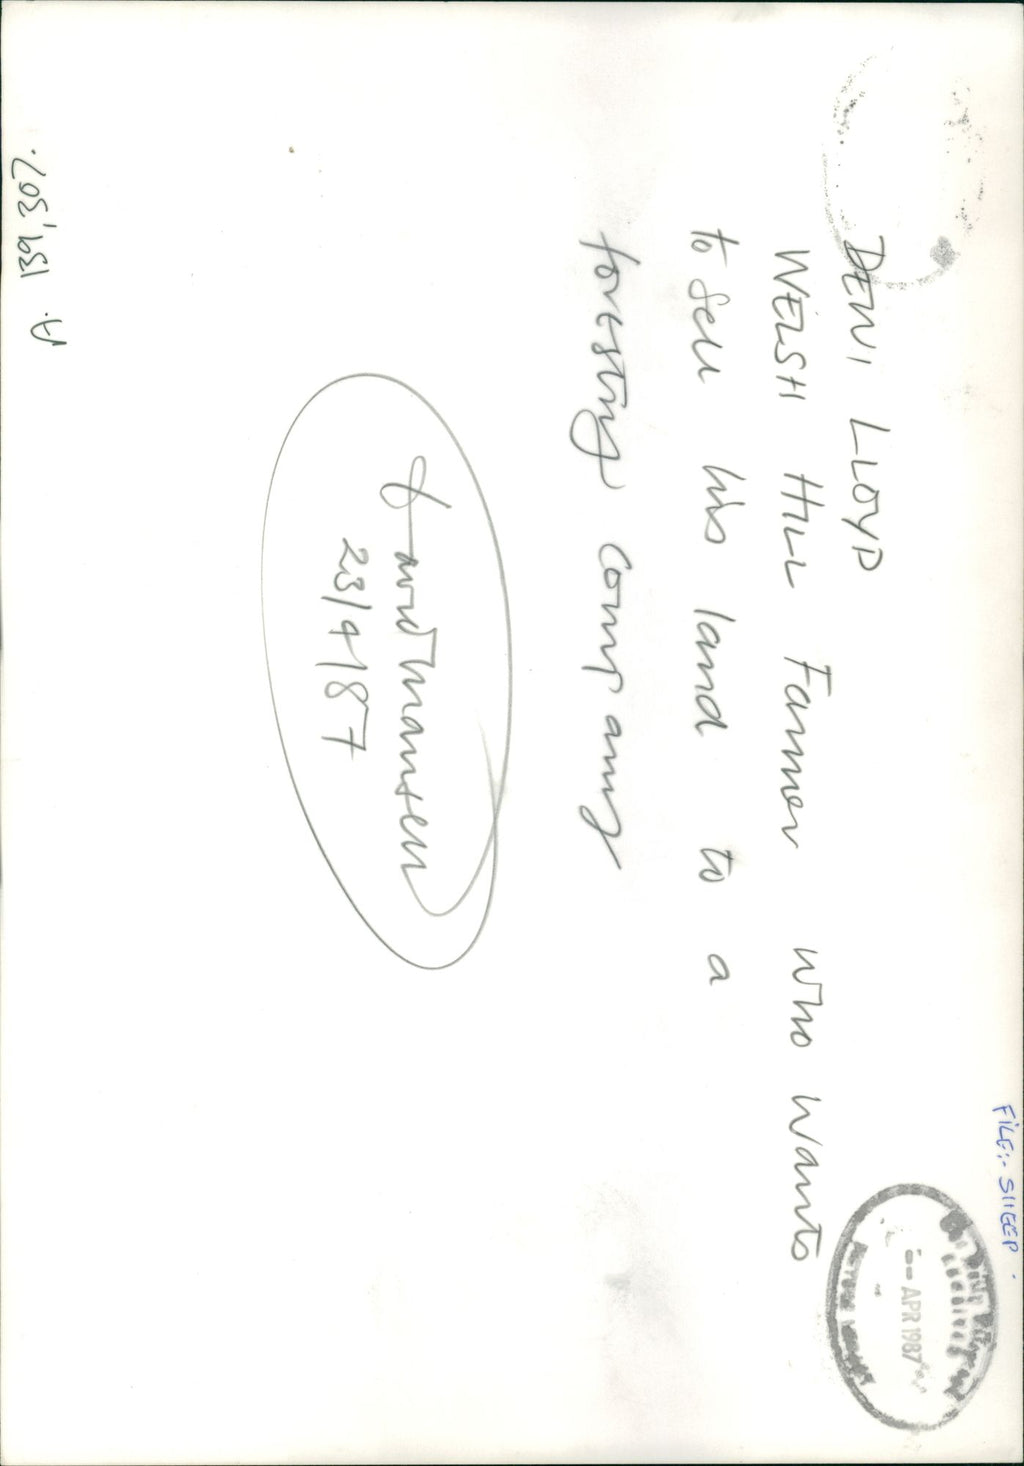 FILE:- SHEEP.
DEWI LLOYD
WELSH HILL Farmer who wants
to sell his land to a
forestry company
23/4/87
APR 1987
A. 159,307.